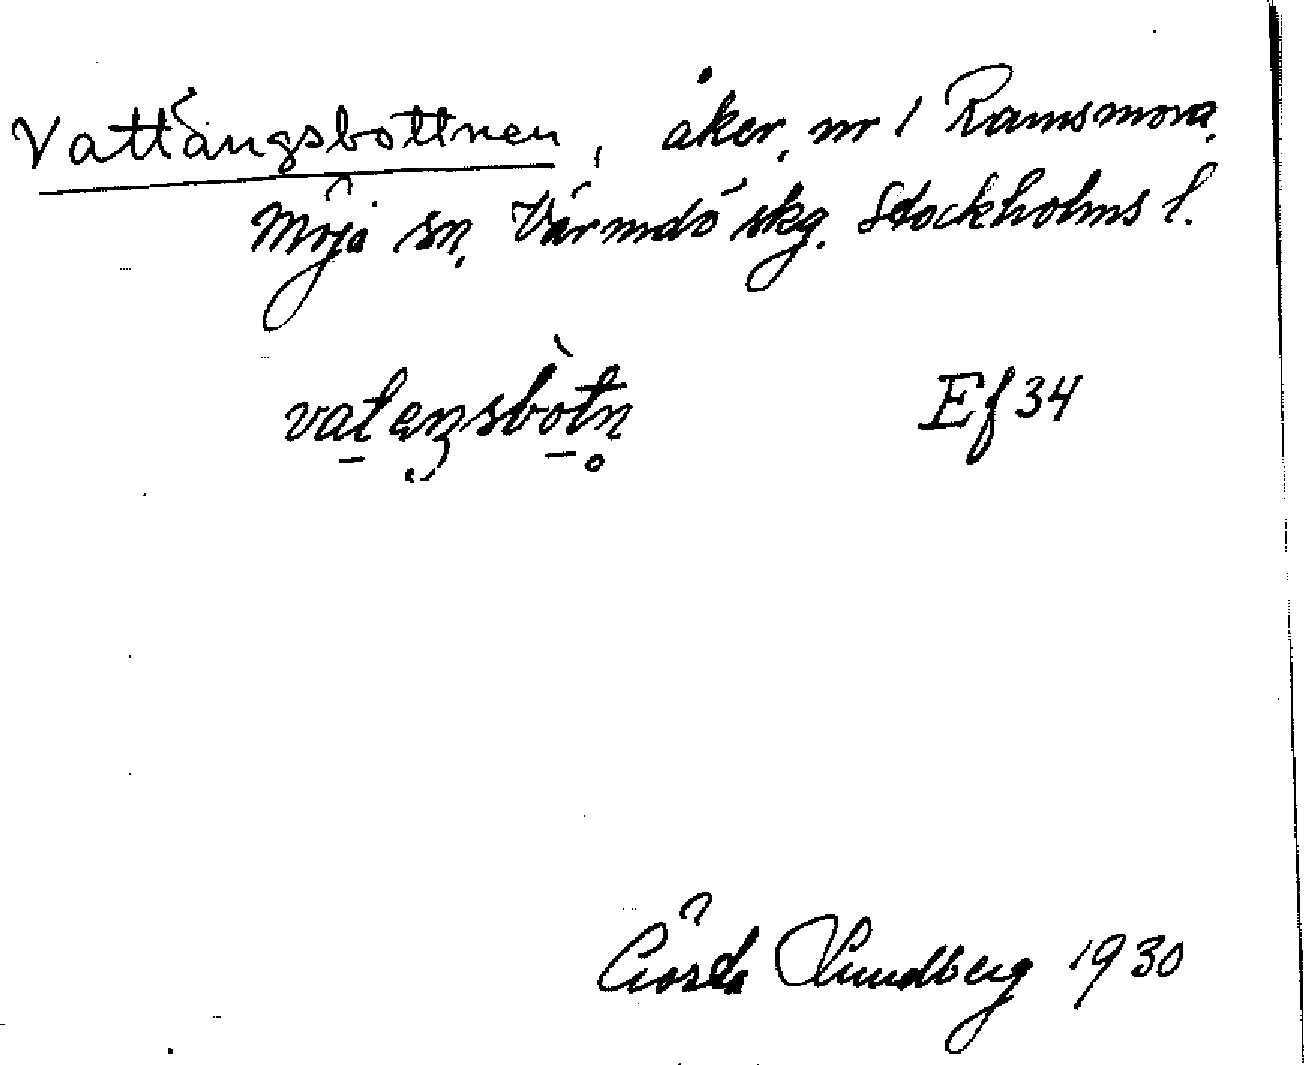 Vattängsbottnen, åker, nr 1 Ramsmora,
Möja sn, Värmdö skg. Stockholms l.
vat_eŋsbòtn̥ Ef 34
Gösta Lundberg 1930